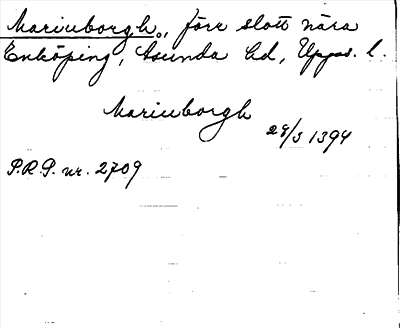 Marieborgh, före slott nära
Enköping, Åsunda hd, Upps. l.
Marieborgh
28/5 1394
P.R.P. nr. 2709